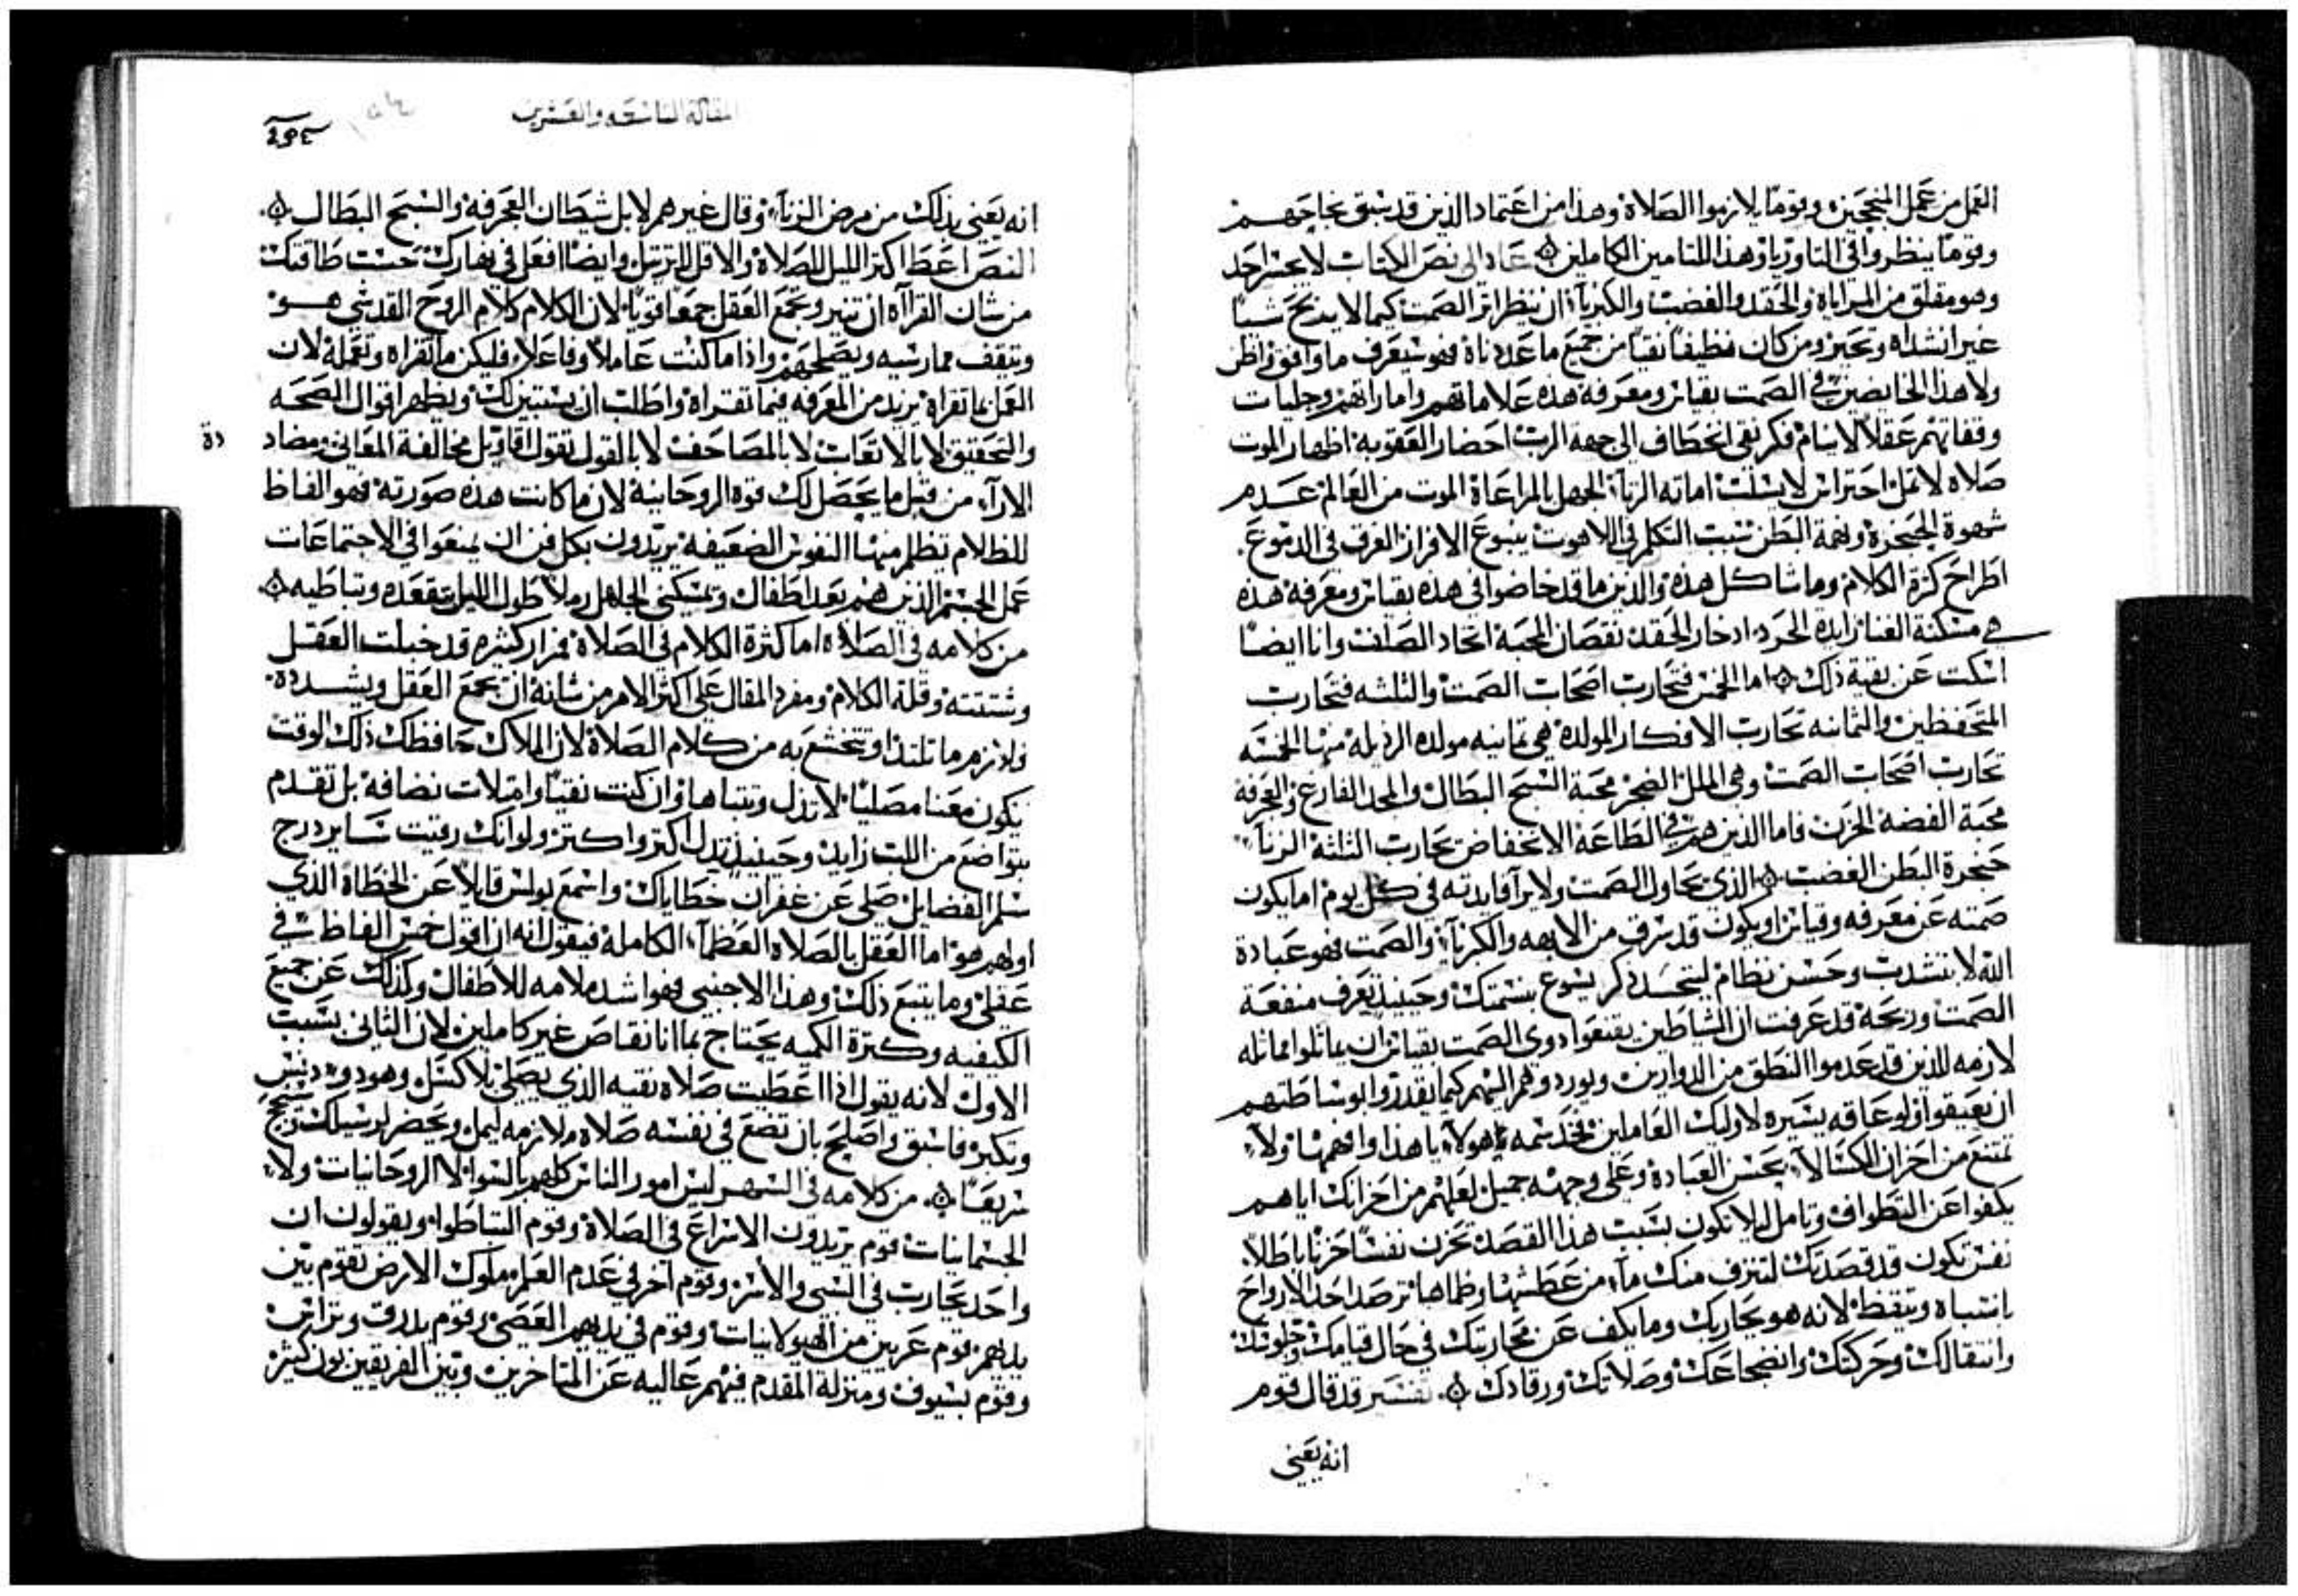 العمل من عمل المنججين وقوما يلازموا الصلاة وهذا من اعتماد الذين قد سبق نجاحهم
وقوما ينظروا في التاوريا وهذا للتامين الكاملين عاد الى نص الكتاب لا يجسر احد
وهو مقلق من المراياة والحقد والغضب والكبريآ ان ينظر اثر الصمت كيما لا يدبح شيا
غير انشداه وتحير ومن كان نظيفا نقيا من جميع ما عددناه فهو سيعرف ما وافق واظن
ولا هذا الخايضين في الصمت بقياس ومعرفه هذه علاماتهم واماراتهم وجليات
وقفاتهم عقلا لاينام فكر نقى انخطاف الى جهة الرب احضار العقوبه اظهار الموت
صلاه لا تمل احتراس لا يسلب اماته الزنآ الجهل بالمراعاة الموت من العالم عدم
شهوة الحنجرة ونهمة البطن سبب التكلم في اللاهوت ينبوع الافراز الغرق في الدموع
اطراح كثرة الكلام وما شاكل هذه والذين ما قد خاضوا في هذه بقياس ومعرفه هذه
هي مسكنة الغنا زايدة الحرد ادخار الحقد نقصان المحبة اتحاد الصلف وانا ايضا
اسكت عن بقية ذلك اما الخمس فتحارب اصحاب الصمت والثلثه فتحارب
المتحفظين والثمانيه تحارب الافكار المولدة هي ثمانيه مولده الرذيلة منها الخمسه
تحارب اصحاب الصمت وهي الملل الضجر محبة السبح البطال والمجد الفارغ والعجرفة
محبة الفضة الحزن فاما الذين هم في الطاعة الانخفاض تحارب الثلثه الزنآ
حنجرة البطن الغضب الذي يحاول الصمت ولا يرآ فايدته في كل يوم اما يكون
صمته عن معرفه وقياس او يكون قد سرق من الابهه والكبريآ والصمت فهو عبادة
الله لا بتشدب وحسن نظام ليتحسد ذكر يسوع بنسمتك وحينيذ تعرف منفعة
الصمت وربحه قد عرفت ان الشياطين يقنعوا ذوى الصمت بقياس ان يماثلوا مماثله
لازمه للذين قد عدموا النطق من الدوايرين ويوردوهم اليهم كيما يقدروا بوساطتهم
ان يعيقوا ولو عاقه يسيره لاوليك العاملين بخد سمه يا هولاء يا هذا وافهمها ولا
تمتنع من احزان الكسالآ بحسن العبادة وعلى وجهه جميل لعلهم من احزانك اياهم
يكفوا عن التطواف وتامل ليلا تكون بسبب هذا القصد تحزن نفسا حزنا باطلا
نفس تكون قد قصدتك لتنزف منك مآ من عطشها وظماها ترصد احد الارواح
بانتباه وتيقظ لانه هو يحاربك وما يكف عن محاربتك في حال قيامك وجلوتك
وانتقالك وحركتك وانضجاعك وصلاتك ورقادك تفسير قد قال قوم
انه يعني
المقالة التاسعه والعشرين
انه يعني بذلك من مرض الزنآ وقال غيرهم لا بل شيطان العجرفة والسبح البطال
النص اعط اكثر الليل للصلاة والاقل للترتيل وايضا افعل في نهارك حسب طاقتك
من شان القرآآه ان تنير وتجمع العقل جمعا قويا لان الكلام كلام الروح القدسي هو
وتثقف ممارسيه ويصلحهم واذا ما كنت عاملا وفاعلا فليكن ما تقراه وتعمله لان
العمل بما تقراه يزيد من المعرفه فيما تقراه واطلب ان يستبين لك ويظهر اقوال الصحه
والتحقيق لا بالاتعاب لا بالمصاحف لا بالقول تقول اقاويل مخالفة المعاني ومضاد
دة
الارآء من قبل ما يحصل لك قوة الروحانية لان ما كانت هذه صورته فهو الفاظ
للظلام تظلم منها النفوس الضعيفه يريدون بكل فن ان يمنعوا في الاجتماعات
عمل الجسم الذين هم بعد اطفال وتمسكني الجاهل رملا طول الليل بتقعده وتباطيه
من كلامه في الصلاة اما كثرة الكلام في الصلاة فمرار كثيره قد خبلت العقل
وشتتته وقلة الكلام ومفرد المقال على اكثر الامر من شانه ان يجمع العقل ويشدده
ولازم ما تلتذ او تتخشع به من كلام الصلاة لان الملاك حافظك ذلك الوقت
يكون معنا مصليا لا تذل وتتباها وان كنت نقيا وامتلات نضافه بل تقدم
بتواضع من اللب زايد وحينيذ تدل اكثر واكثر ولو انك رقيت ساير درج
سلم الفضايل صلى عن غفران خطاياك واسمع بولس قايلا عن الخطاة الذي
اولهم هو اما العقل بالصلاه العظمآ الكاملة فيقول انه ان اقول خمس الفاظ في
عقلي وما يتبع ذلك وهذا الاجنبي فهو اشد ملامه للاطفال ولذلك عن جميع
الكيفيه وكثرة الكميه يحتاج بما انا نقاص غير كاملين لان الثاني بسبب
الاول لانه يقول اذا اعطيت صلاه نقيه الذي يصلي بلا كسل وهو ذو دنس
وتكبر فاسبق واصلح بان تضع في نفسه صلاة ملازمه ليمل ويحضر لرسيلك ترجح
شريفا من كلامه في السهر ليس امور الناس كلهم بالسوا لا الروحانيات ولا
الجسمانيات قوم يريدون الاسراع في الصلاة وقوم التباطوا ويقولون ان
واحد يحارب في السبي والاسر وقوم آخر في عدم العلم ملوك الارض تقوم بين
يديهم قوم عريين من الهيولانيات وقوم في يديهم العصي وقوم بدرق وتراس
وقوم بسيوف ومنزلة المقدم فيهم عاليه عن المتاخرين وبين الفريقين بون كثير